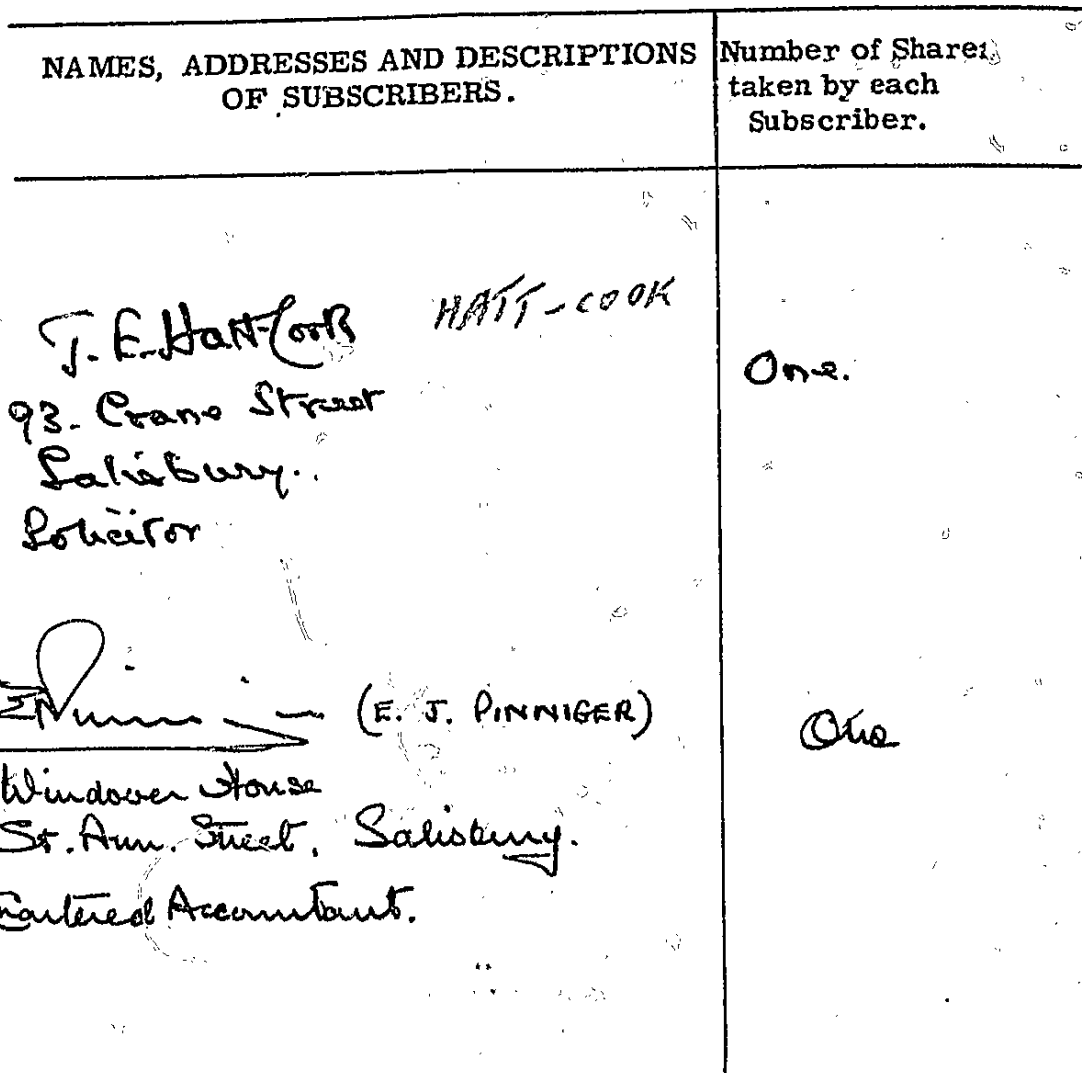 NAMES, ADDRESSES AND DESCRIPTIONS
OF SUBSCRIBERS.
Number of Shares
taken by each
Subscriber.
J. E. Hatt-Cook HATT-COOK
One.
93. Crane Street
Salisbury.
Solicitor
(E. J. PINNIGER)
One
Windover House
St. Ann. Street, Salisbury.
Chartered Accountant.